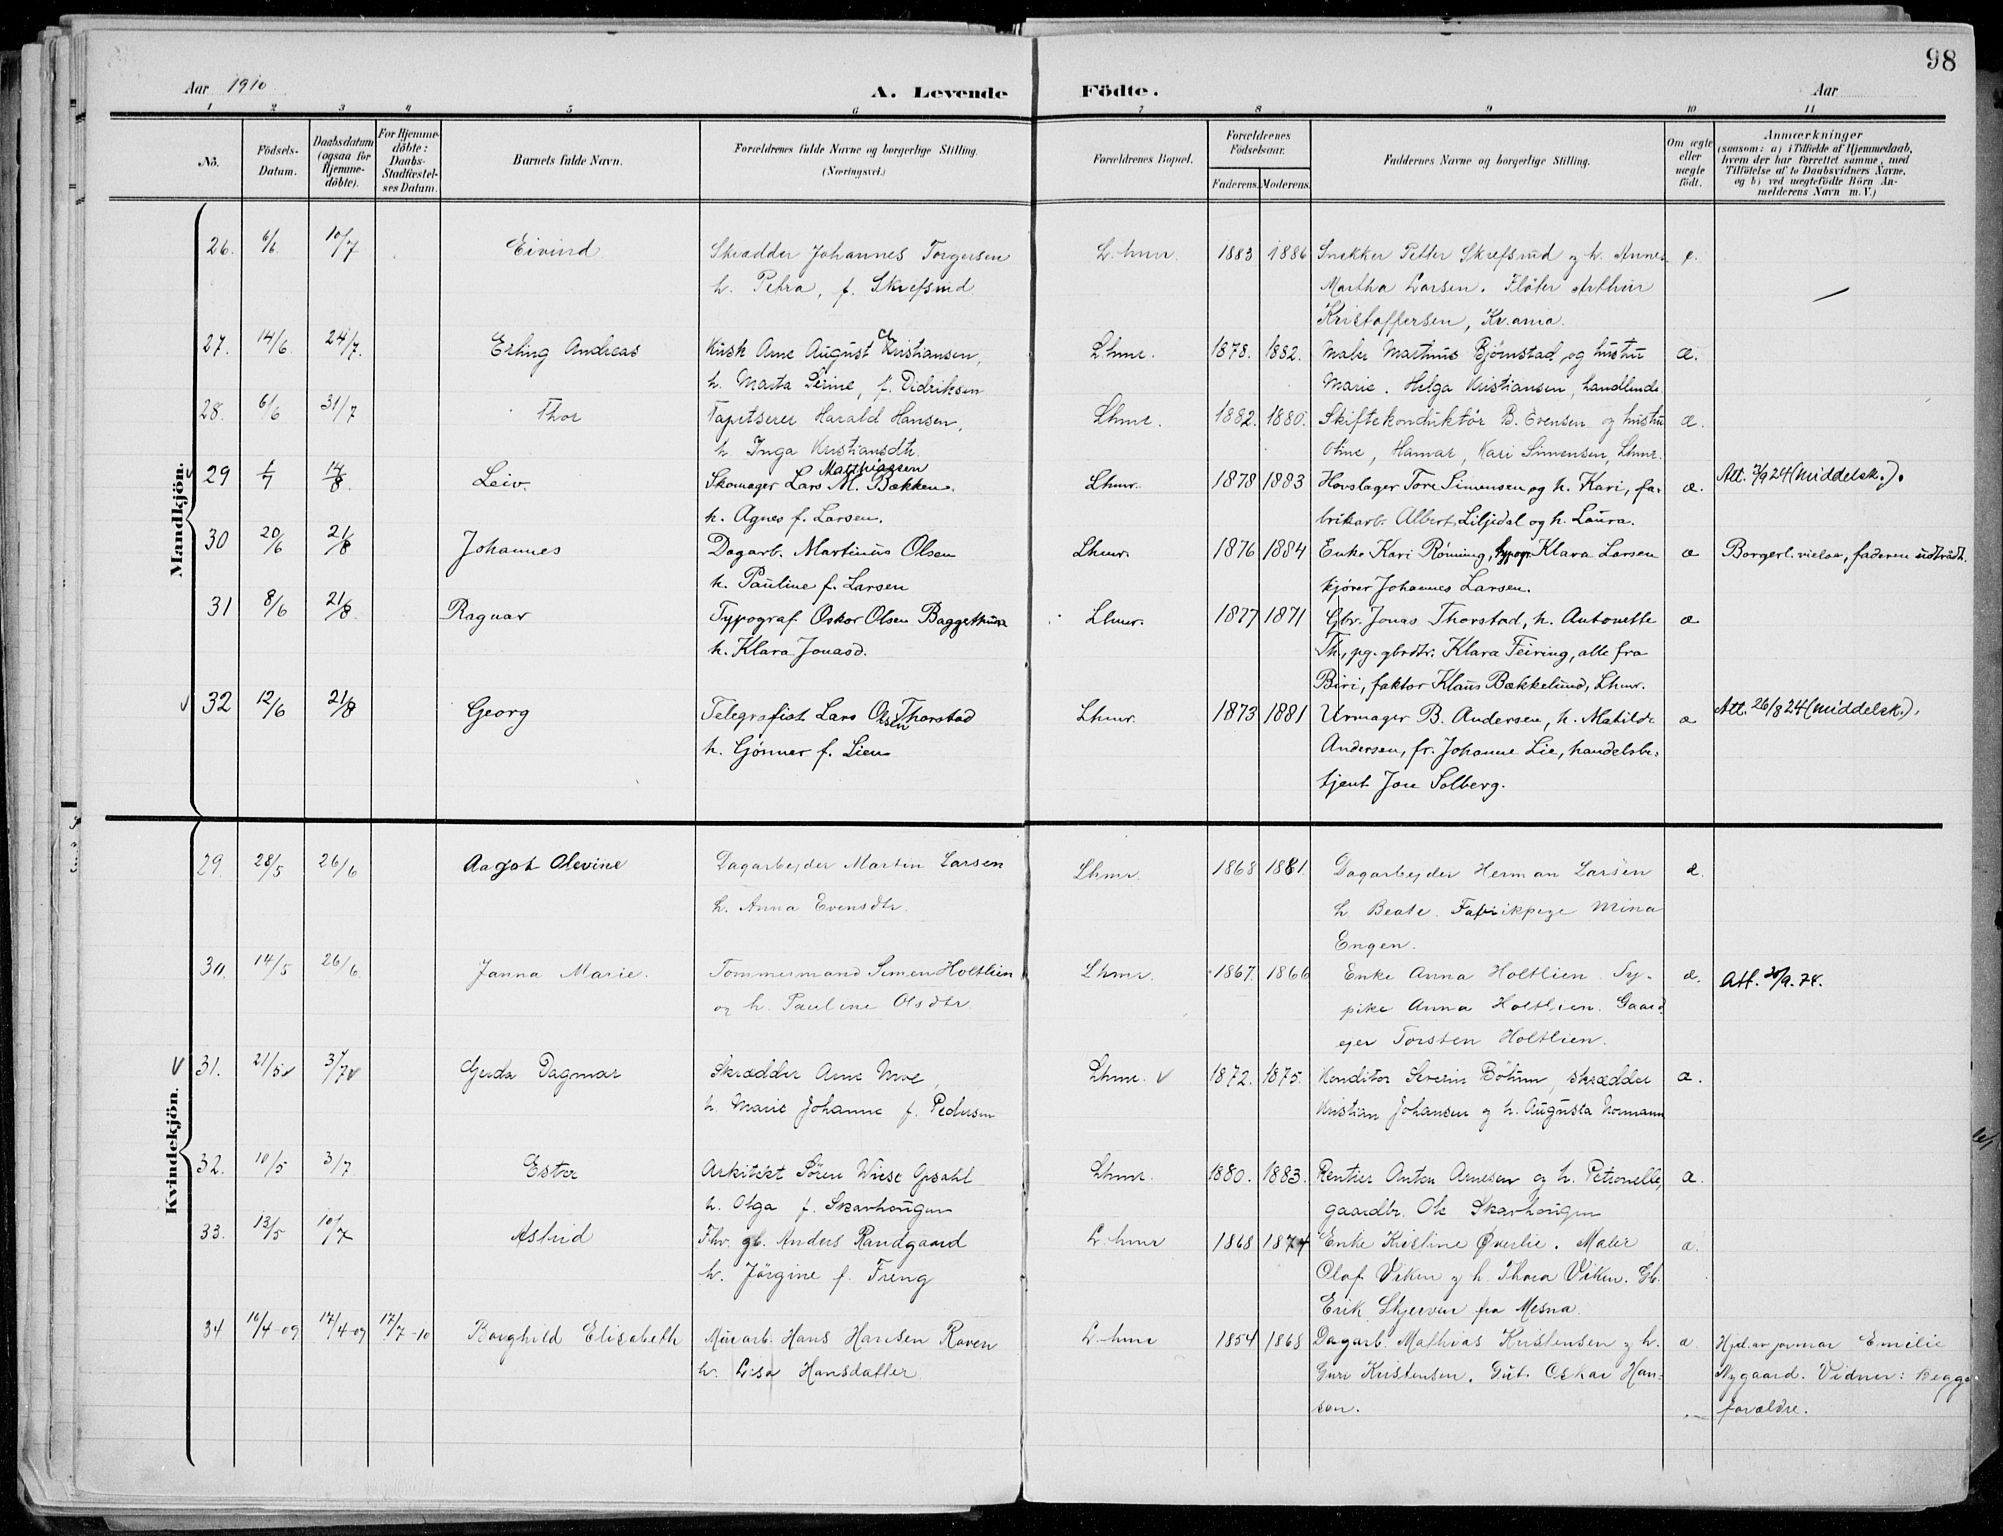 98
Aar 1910 A. Levende Födte. Aar
1 2 3 4 5 6 7 8 9 10 11
No. Födsels-Datum. Daabsdatum (ogsaa for Hjemme-döbte). For Hjemme-döbte: Daabs-Stadfæstel-ses Datum. Barnets fulde Navn. Forældrenes fulde Navne og borgerlige Stilling. (Næringsvei.) Forældrenes Bopæl. Forældrenes Födselsaar. Faderens. Moderens. Faddernes Navne og borgerlige Stilling. Om ægte eller uægte födt. Anmærkninger (saasom: a) i Tilfælde af Hjemmedaab, hvem der har forrettet samme, med Tilföielse af to Daabsvidners Navne, og b) ved uægtefödte Börn An-melderens Navn m. V.)
Mandkjön.
26. 6/6 10/7 Eivind Skrædder Johannes Torgersen L.hmr. 1883 1886 Snekker Petter Skrefsrud og h. Anne æ.
h. Petra, f. Skrefsrud Martha Larsen. Fløter Arthur
Kristoffersen, Kr.ania.
27. 14/6 24/7. Erling Andreas Kusk Arne August Kristiansen, Lhmr. 1878. 1882. Maler Martinus Bjørnstad og hustru æ.
h. Marta Perine, f. Didriksen Marie. Helga Kristiansen, Landlinde
28. 6/6 31/7 Thor Tapetserer Harald Hansen, Lhmr. 1882. 1880. Skiftekonduktør B. Evensen og hustru æ.
h. Inga Kristiansdtr. Otine, Hamar, Kari Simensen, Lhmr.
29 1/7 14/8 Leiv. Skomager Lars M. Matthiassen Bækken. Lhmr. 1878 1883 Hovslager Tore Simensen og h. Kari, fa- æ. Att. 3/9 24 (Middelsk.).
h. Agnes f. Larsen. brikarb. Albert Liljedal og h. Laura.
30 20/6 21/8 Johannes Dagarb. Martinus Olsen Lhmr. 1876 1884 Enke Kari Rønning, typogr. Klara Larsen æ Borgerl. vielse, faderen udtrådt.
h. Pauline f. Larsen kjører Johannes Larsen.
31 8/6 21/8. Ragnar Typograf Oskar Olsen Baggethun Lhmr. 1877 1871 Gbr. Jonas Thorstad, h. Antonette æ
h. Klara Jonasd. Th., pg. gbrdtr. Klara Teiring, alle fra
Biri, faktor Klaus Bækkelund, Lhmr.
32 12/6 21/8 Georg Telegrafist Lars Olsen Thorstad Lhmr. 1873 1881 Urmager B. Andersen, h. Matilde æ Att. 26/8 24 (Middelsk.).
h. Gjønner f. Lien Andersen, fr. Johanne Lie, handelsbe-
tjent Jon Solberg.
Kvindekjön.
29. 28/5 26/6 Aagot Olevine Dagarbejder Martin Larsen Lhmr. 1868 1881. Dagarbejder Herman Larsen æ.
h. Anna Evensdtr. h. Beate. Fabrikpige Mina
Engen.
30. 14/5 26/6. Janna Marie. Tømmermand Simen Holtlien Lhmr. 1867. 1866 Enke Anna Holtlien. Sy- æ. Att. 20/9.74.
og h. Pauline Olsdtr. pike Anna Holtlien. Gaard-
ejer Torsten Holtlien.
31. 21/5 3/7 Gerda Dagmar Skrædder Arne Moe, Lhmr. 1872. 1875. Konditor Severin Bøhm, skrædder æ.
h. Marie Johanne f. Pedersen Kristian Johansen og h. Augusta Normann
32. 10/5 3/7 Ester Arkitekt Søren Wiese Opsahl Lhmr. 1880. 1883. Rentier Anton Arnesen og h. Petronelle, æ.
h. Olga f. Skarhougen gaardbr. Ole Skarhougen
33. 13/5 10/7 Astrid Fhv. gb. Anders Randgaard L.hmr 1868 1874 Enke Kristine Øverlie. Maler æ.
h. Jörgine f. Freng Olaf Viken og h. Thora Viken. Gb.
Erik Skjerven fra Mesna.
34 10/4-09 17/4-09 17/7-10 Borghild Elisabeth Murarb. Hans Hansen Raven L.hmr 1854 1868 Dagarb. Mathias Kristensen og h. æ. Hjd. av jormor Emilie
h. Lisa Hansdatter. Guri Kristensen. Gut Oskar Han- Nygaard. Vidner: Begge
sen. forældre.